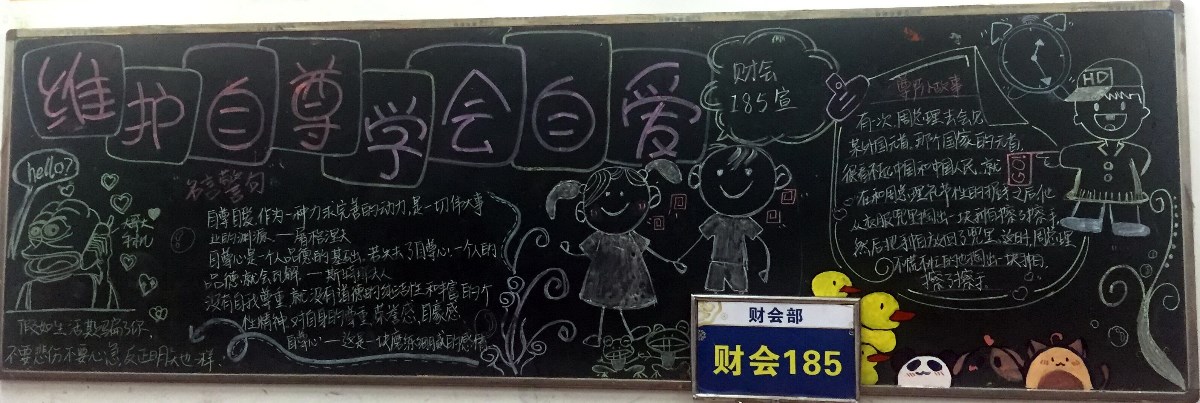 维护自尊学会自爱
财会
185宣
hello?
名言警句
自尊自爱,作为一种力求完善的动力,是一切伟大事
业的渊源。——屠格涅夫
自尊心是一个人品德的基础。若失去了自尊心,一个人的
品德就会瓦解。——斯
没有自我尊重,就没有道德的纯洁性和丰富的个
性精神。对自身的尊重、荣誉感、自豪感、
自尊心——这是一块磨砺细腻的感情
假如生活欺骗了你
不要悲伤不要心急,反正明天也一样.
HD
有一次,周总理去会见
某外国元首,那个国家的元首,
很看不起中国和中国人民,就
在和周总理礼节性的握手之后,他
从衣服兜里掏出一块手帕擦了擦手,
然后把手帕放回了兜里,这时,周总理
不慌不忙的也掏出一块手帕,
擦了擦手
财会部
财会185